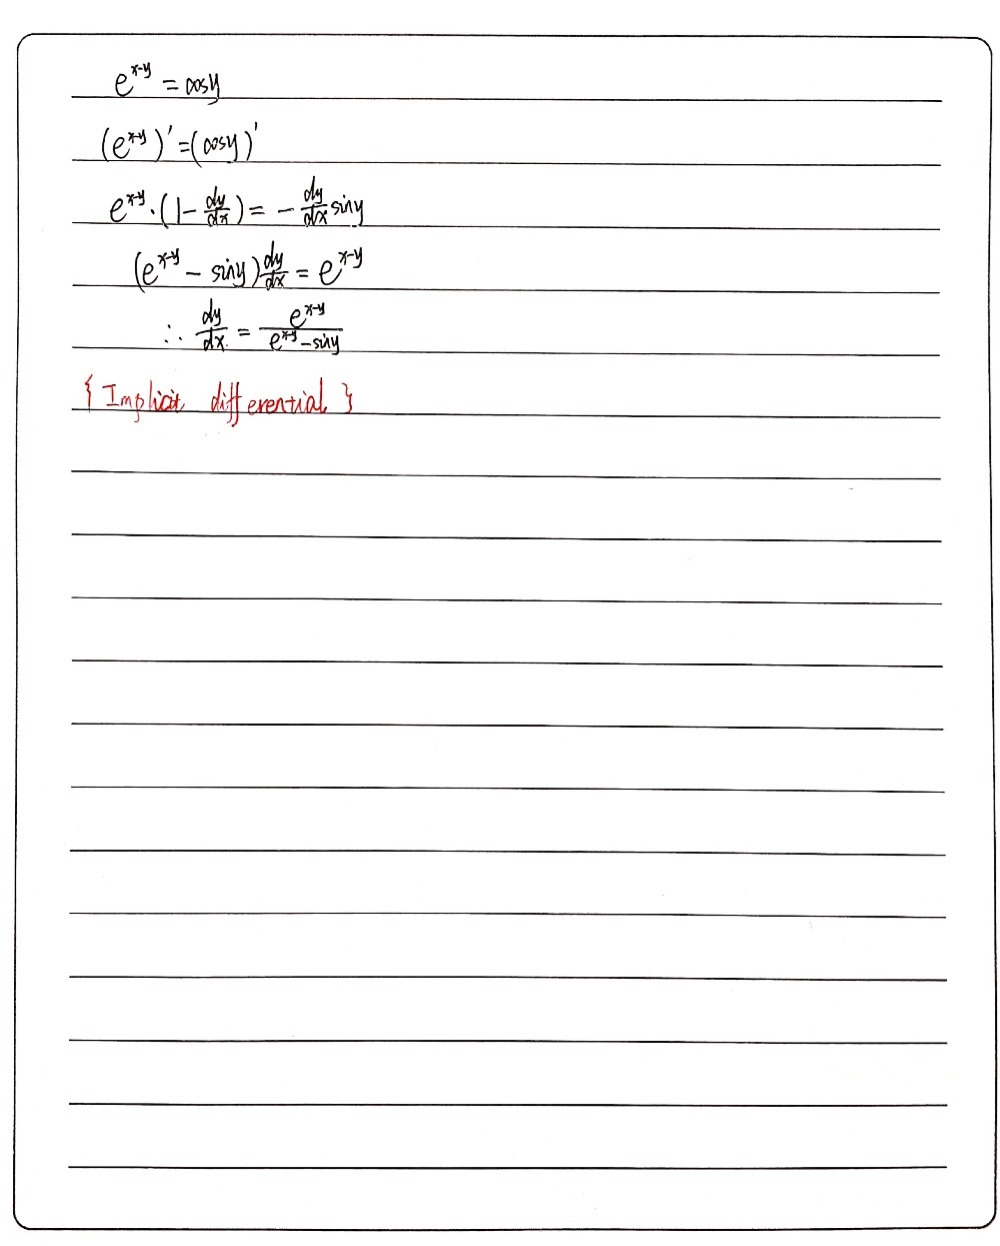 e^{x-y} = cosy
(e^{x-y})' = (cosy)'
e^{x-y}·(1-\frac{dy}{dx}) = -\frac{dy}{dx} siny
(e^{x-y} - siny)\frac{dy}{dx} = e^{x-y}
∴ \frac{dy}{dx} = \frac{e^{x-y}}{e^{x-y}-siny}
{ Implicit differential }